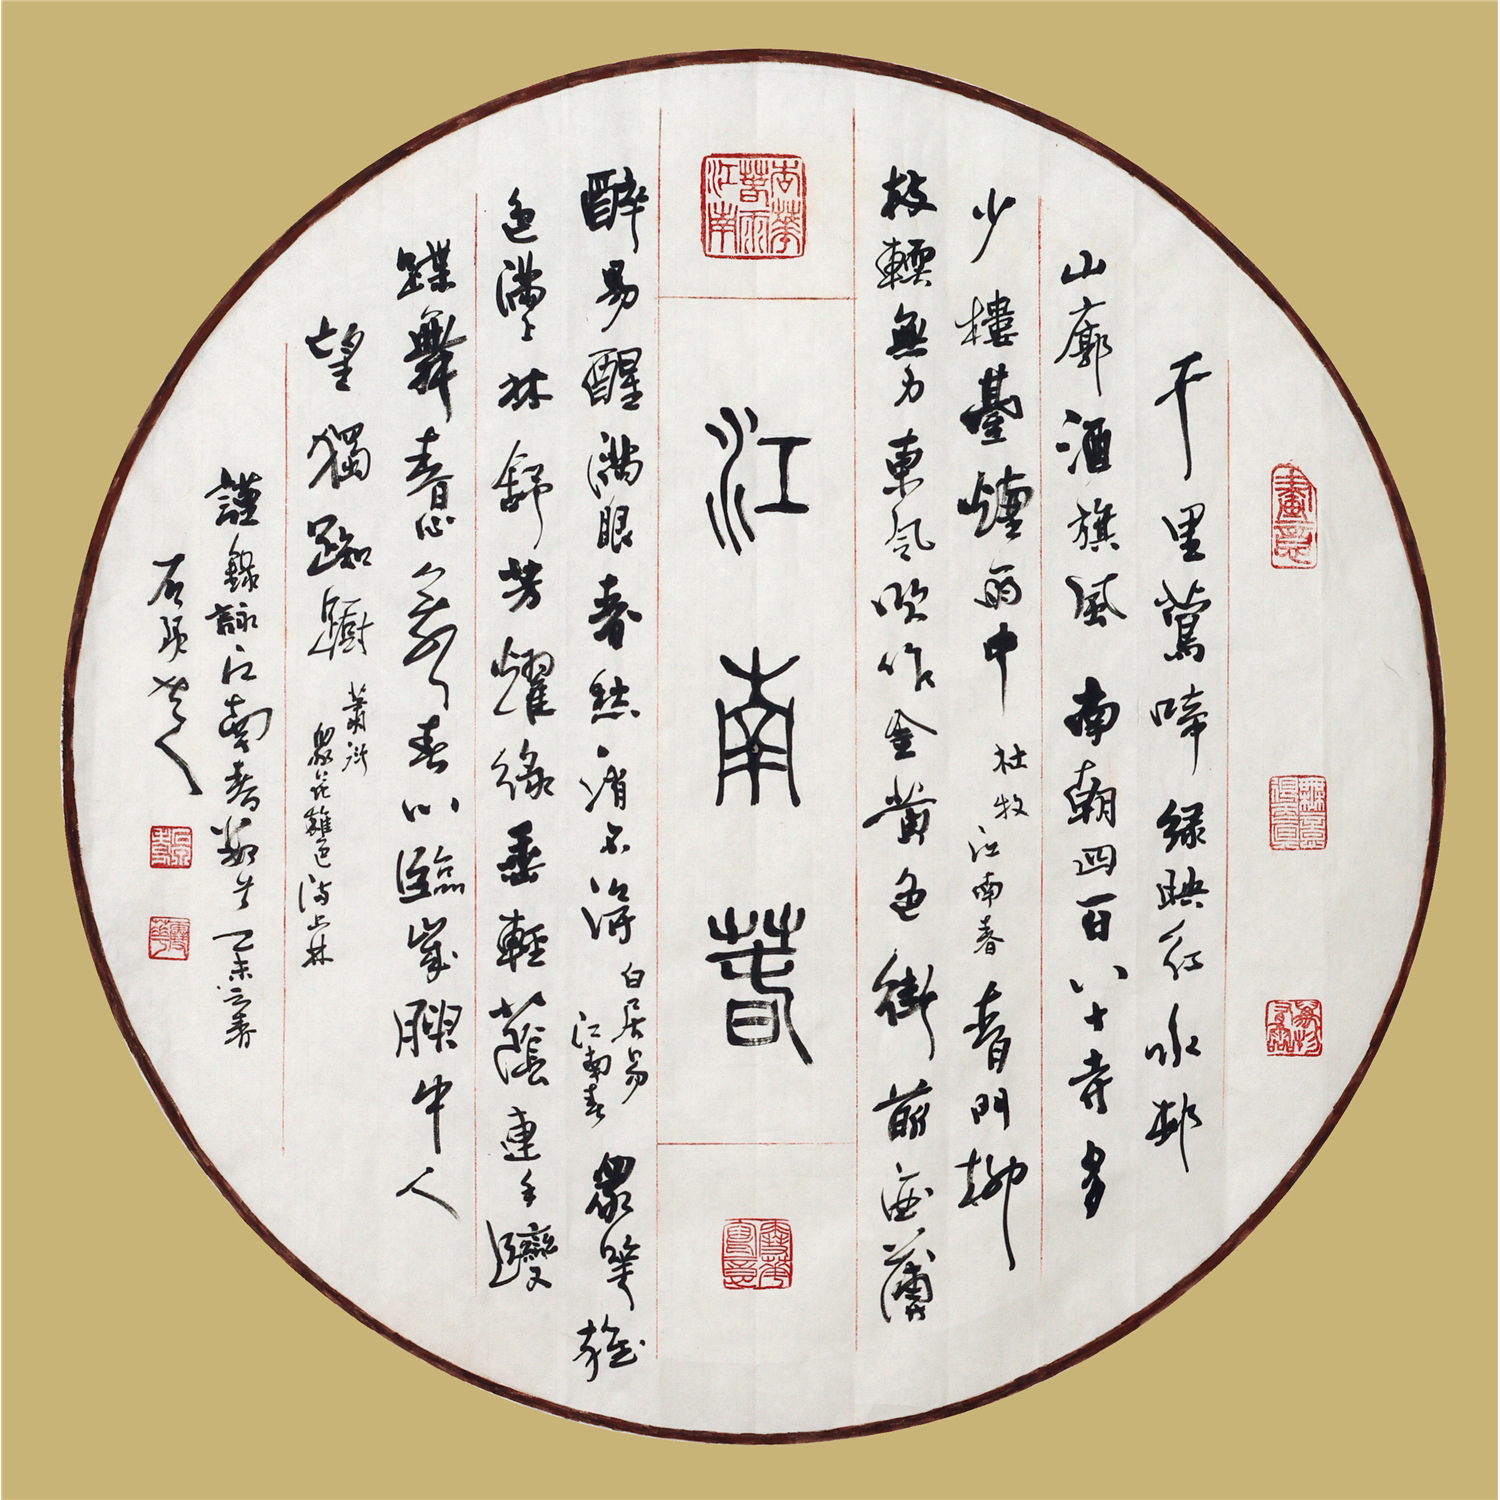 千里鶯啼緑映紅水邨
山廓酒旗風南朝四百八十寺多
少樓臺煙雨中 杜牧 江南春 青門柳
枝輭無力東風吹作金黃色街前酒薄
杏華春雨江南
江南春
醉易醒滿眼春愁消不得 白居易 江南春 眾花雜
色滿上林舒芳耀緑垂輕蔭連手躞
蹀舞春心舞春心臨歲腴中人
望獨踟躕 蕭衍 眾花雜色滿上林
謹錄詠江南春數首乙未之春